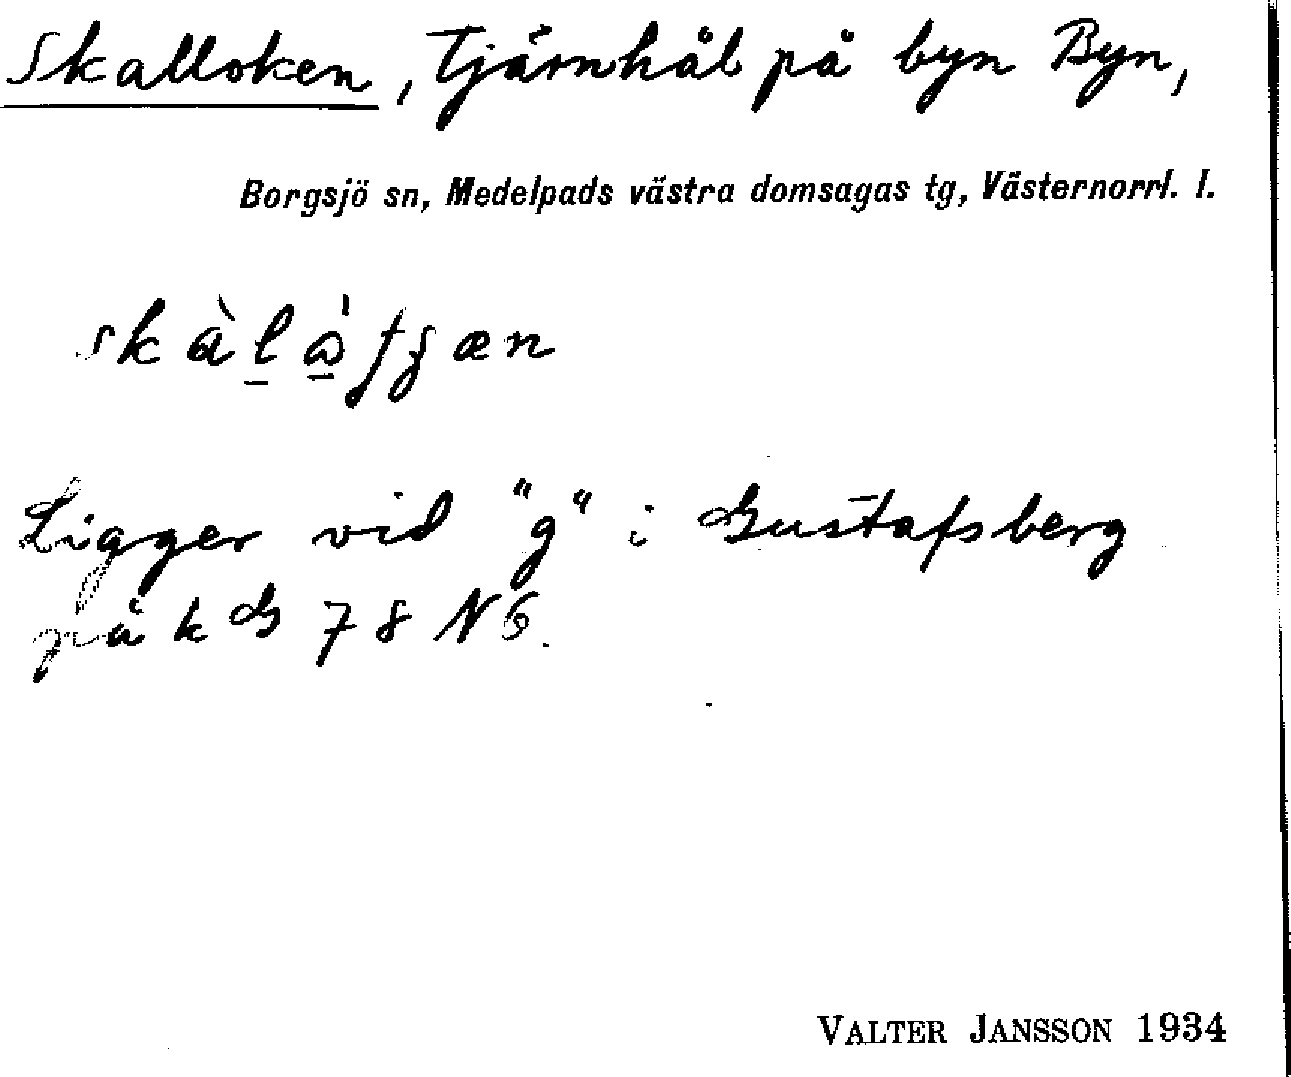 Skalloken, Tjärnhål på byn Byn,
Borgsjö sn, Medelpads västra domsagas tg, Västernorrl. l.
Ligger vid "g" i Gustafsberg
på k G 78 NÖ.
VALTER JANSSON 1934